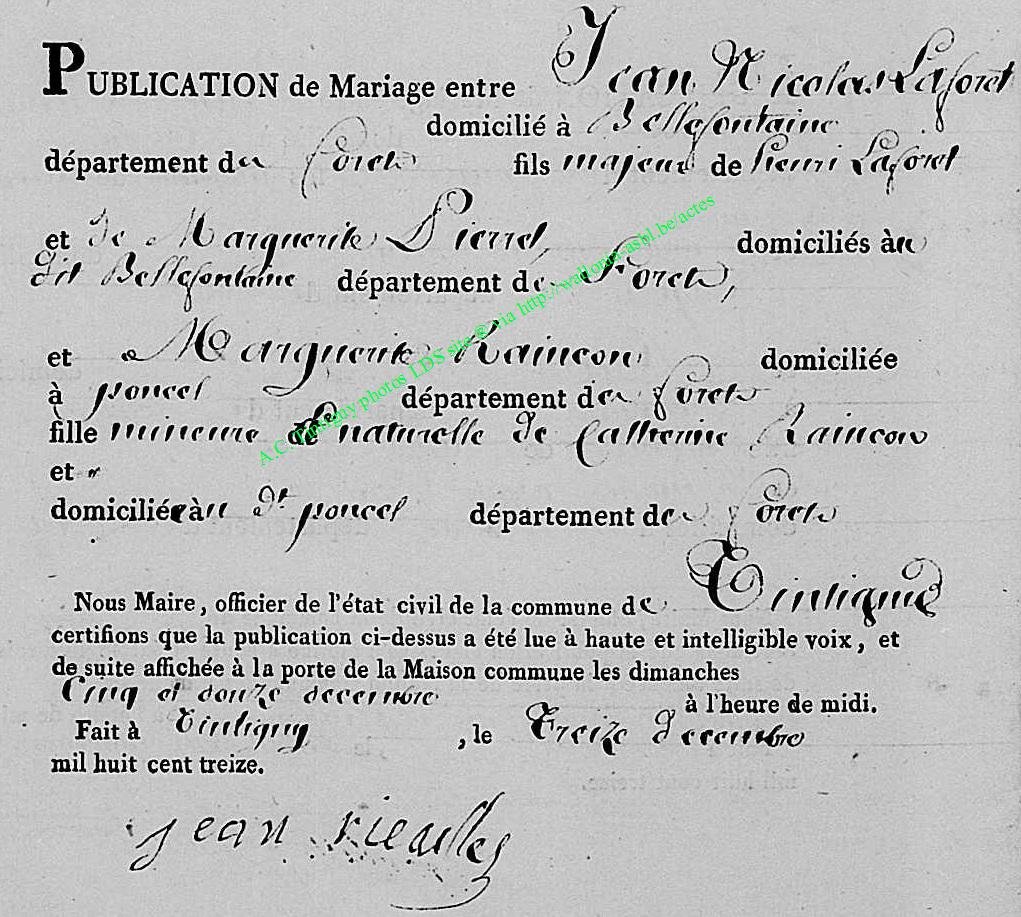 PUBLICATION de Mariage entre Jean Nicolas Laforet
domicilié à Bellefontaine
département des forets fils majeur de Pierri Laforet
et de Marguerite Pierret, domiciliés au
dit Bellefontaine département des Forets,
et Marguerite Raincon domiciliée
à poncel département des forets
fille mineure naturelle de Catherine Raincon
et
domiciliée au dt poncel département des forets
Nous Maire, officier de l'état civil de la commune de Tintigny
certifions que la publication ci-dessus a été lue à haute et intelligible voix, et
de suite affichée à la porte de la Maison commune les dimanches
Cinq et douze decembre à l'heure de midi.
Fait à Tintigny, le Treize decembre
mil huit cent treize.
jean
A.C. Tintigny photos LDS site © via http://wallonia-asbl.be/actes